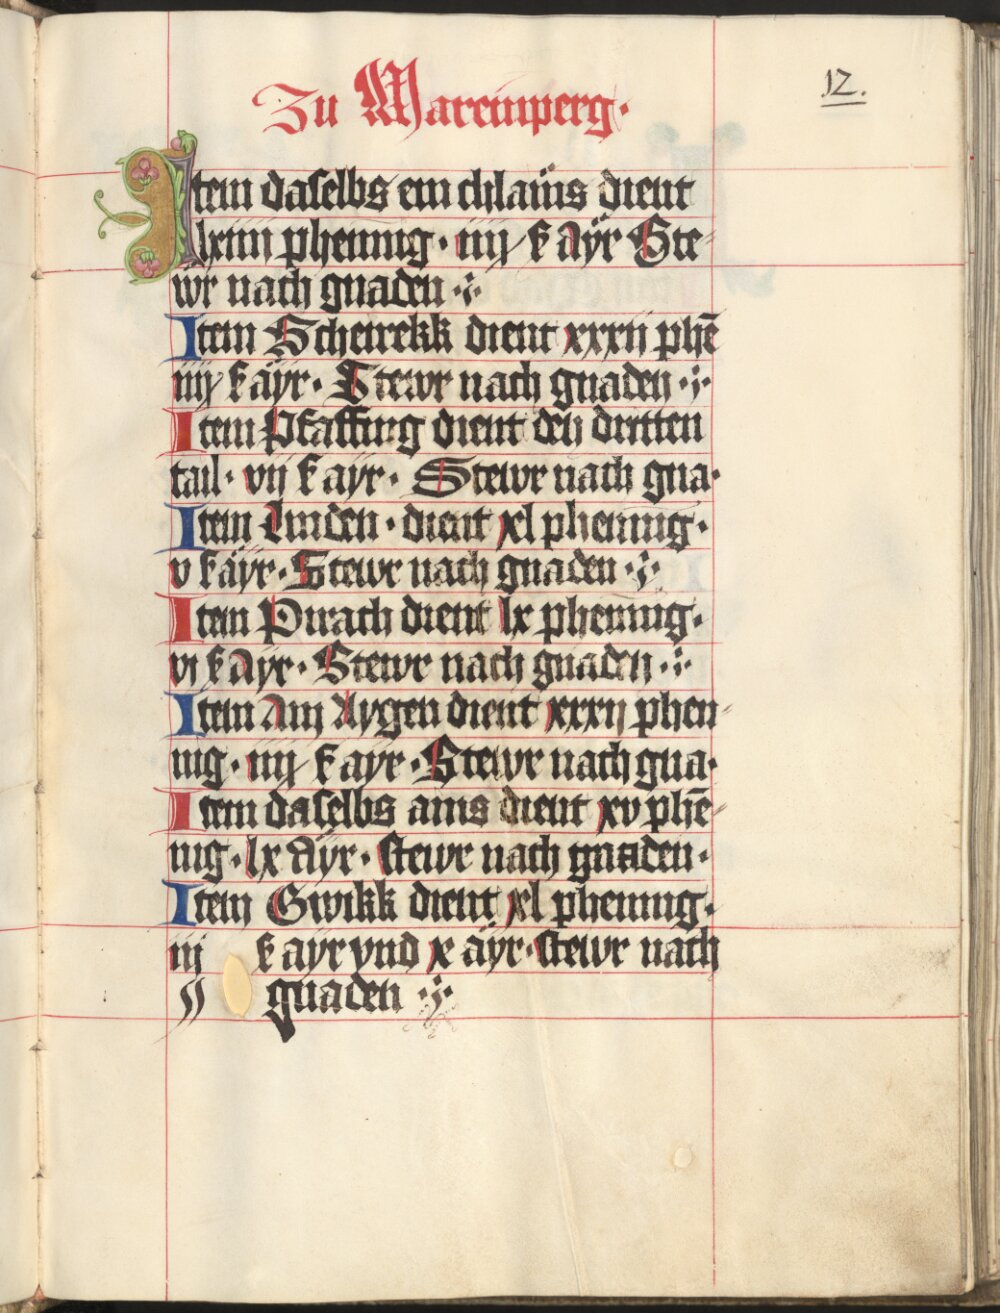 Zu Maremperg·
12.
Item daselbs ein chlaüs dient
lxiiii phennig · iiij k Aÿr Ste-
wr nach gnaden ·:·
Item Scheirekk dient xxxii phē
iiij k äyr · Stewr nach gnaden ·:·
Item Pfaffing dient den dritten
tail · vij k ayr · Stewr nach gna·
Item Linden · dient xl phennig ·
v k äyr · Stewr nach gnaden ·:·
Item Pirach dient lx phennig ·
vi k Ayr · Stewr nach gnaden ·:·
Item Am Aygen dient xxxij phen-
nig · iiij k ayr · Stewr nach gna·
Item daselbs ains dient xv phē-
nig · lx Aÿr · stewr nach gnaden ·
Item Gwikk dient xl phennig ·
iij k ayr vnd x äyr · stewr nach
gnaden ·:·